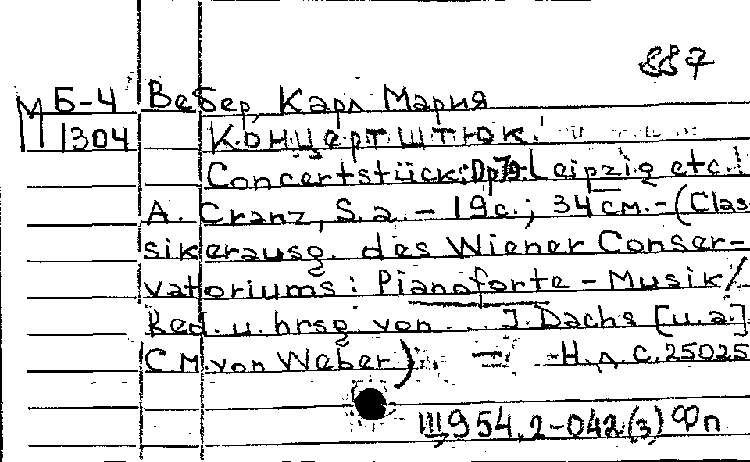 887
М Б-4 Вебер, Карл Мария
1304 Концертштюк.
Concertstück: Op. 79. Leipzig etc.
A. Cranz, S.a. - 19 с.; 34 см. - (Clas
sikerausg. des Wiener Conser-
vatoriums: Pianoforte - Musik/
Red. u. hrsg. von J. Dachs [u.a.]
C.M. von Weber). - Н.д. C. 25025
Щ954.2-042(3)Фп